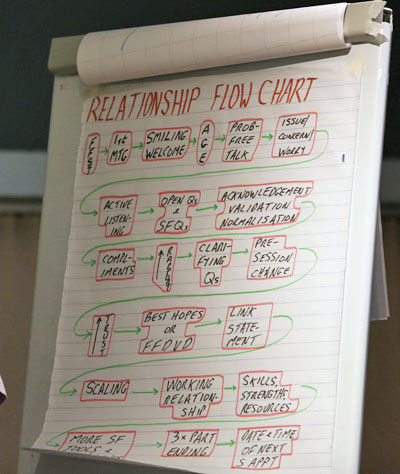 RELATIONSHIP FLOW CHART
1st MTG
SMILING WELCOME
AGE
PROB-FREE TALK
ISSUE/ CONCERN/ WORRY
ACTIVE LISTEN-ING
OPEN Qs & SFQs
ACKNOWLEDGEMENT VALIDATION NORMALISATION
COMPLI-MENTS
RAPPORT
CLARI-FYING Qs
PRE-SESSION CHANGE
TRUST
BEST HOPES OR FFDVD
LINK STATE-MENT
SCALING
WORKING RELATION-SHIP
SKILLS, STRENGTHS, RESOURCES
MORE SF TOOLS &
3 x PART ENDING
DATE & TIME OF NEXT APPT